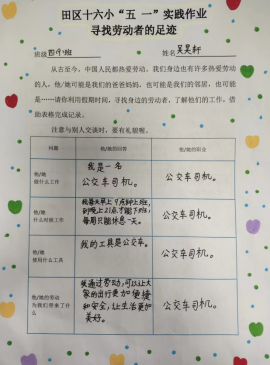 田区十六小“五 一”实践作业
寻找劳动者的足迹
班级 四(1)班 姓名 吴昊轩
从古至今，中国人民都热爱劳动。我们身边也有许多热爱劳动
的人，他/她可能是我们的爸爸妈妈，也可能是我们的邻居，也可能
是……请你利用假期时间，寻找身边的劳动者，了解他们的工作，借
助表格完成记录。
注意与别人交谈时，要有礼貌哦。
问题 他/她的回答 他/她的职业
他/她
做什么工作
我是一名
公交车司机。
公交车司机。
他/她
什么时候工作
我每天早上7点钟上班,
到晚上21点才能下班,
每周只能休息一天。
公交车司机。
他/她
使用什么工具
我的工具是公交车。
公交车司机。
他/她的劳动
为我们带来了什
么
通过劳动,可以让大
家的出行更加便捷
和安全,让生活更加
美好。
公交车司机。